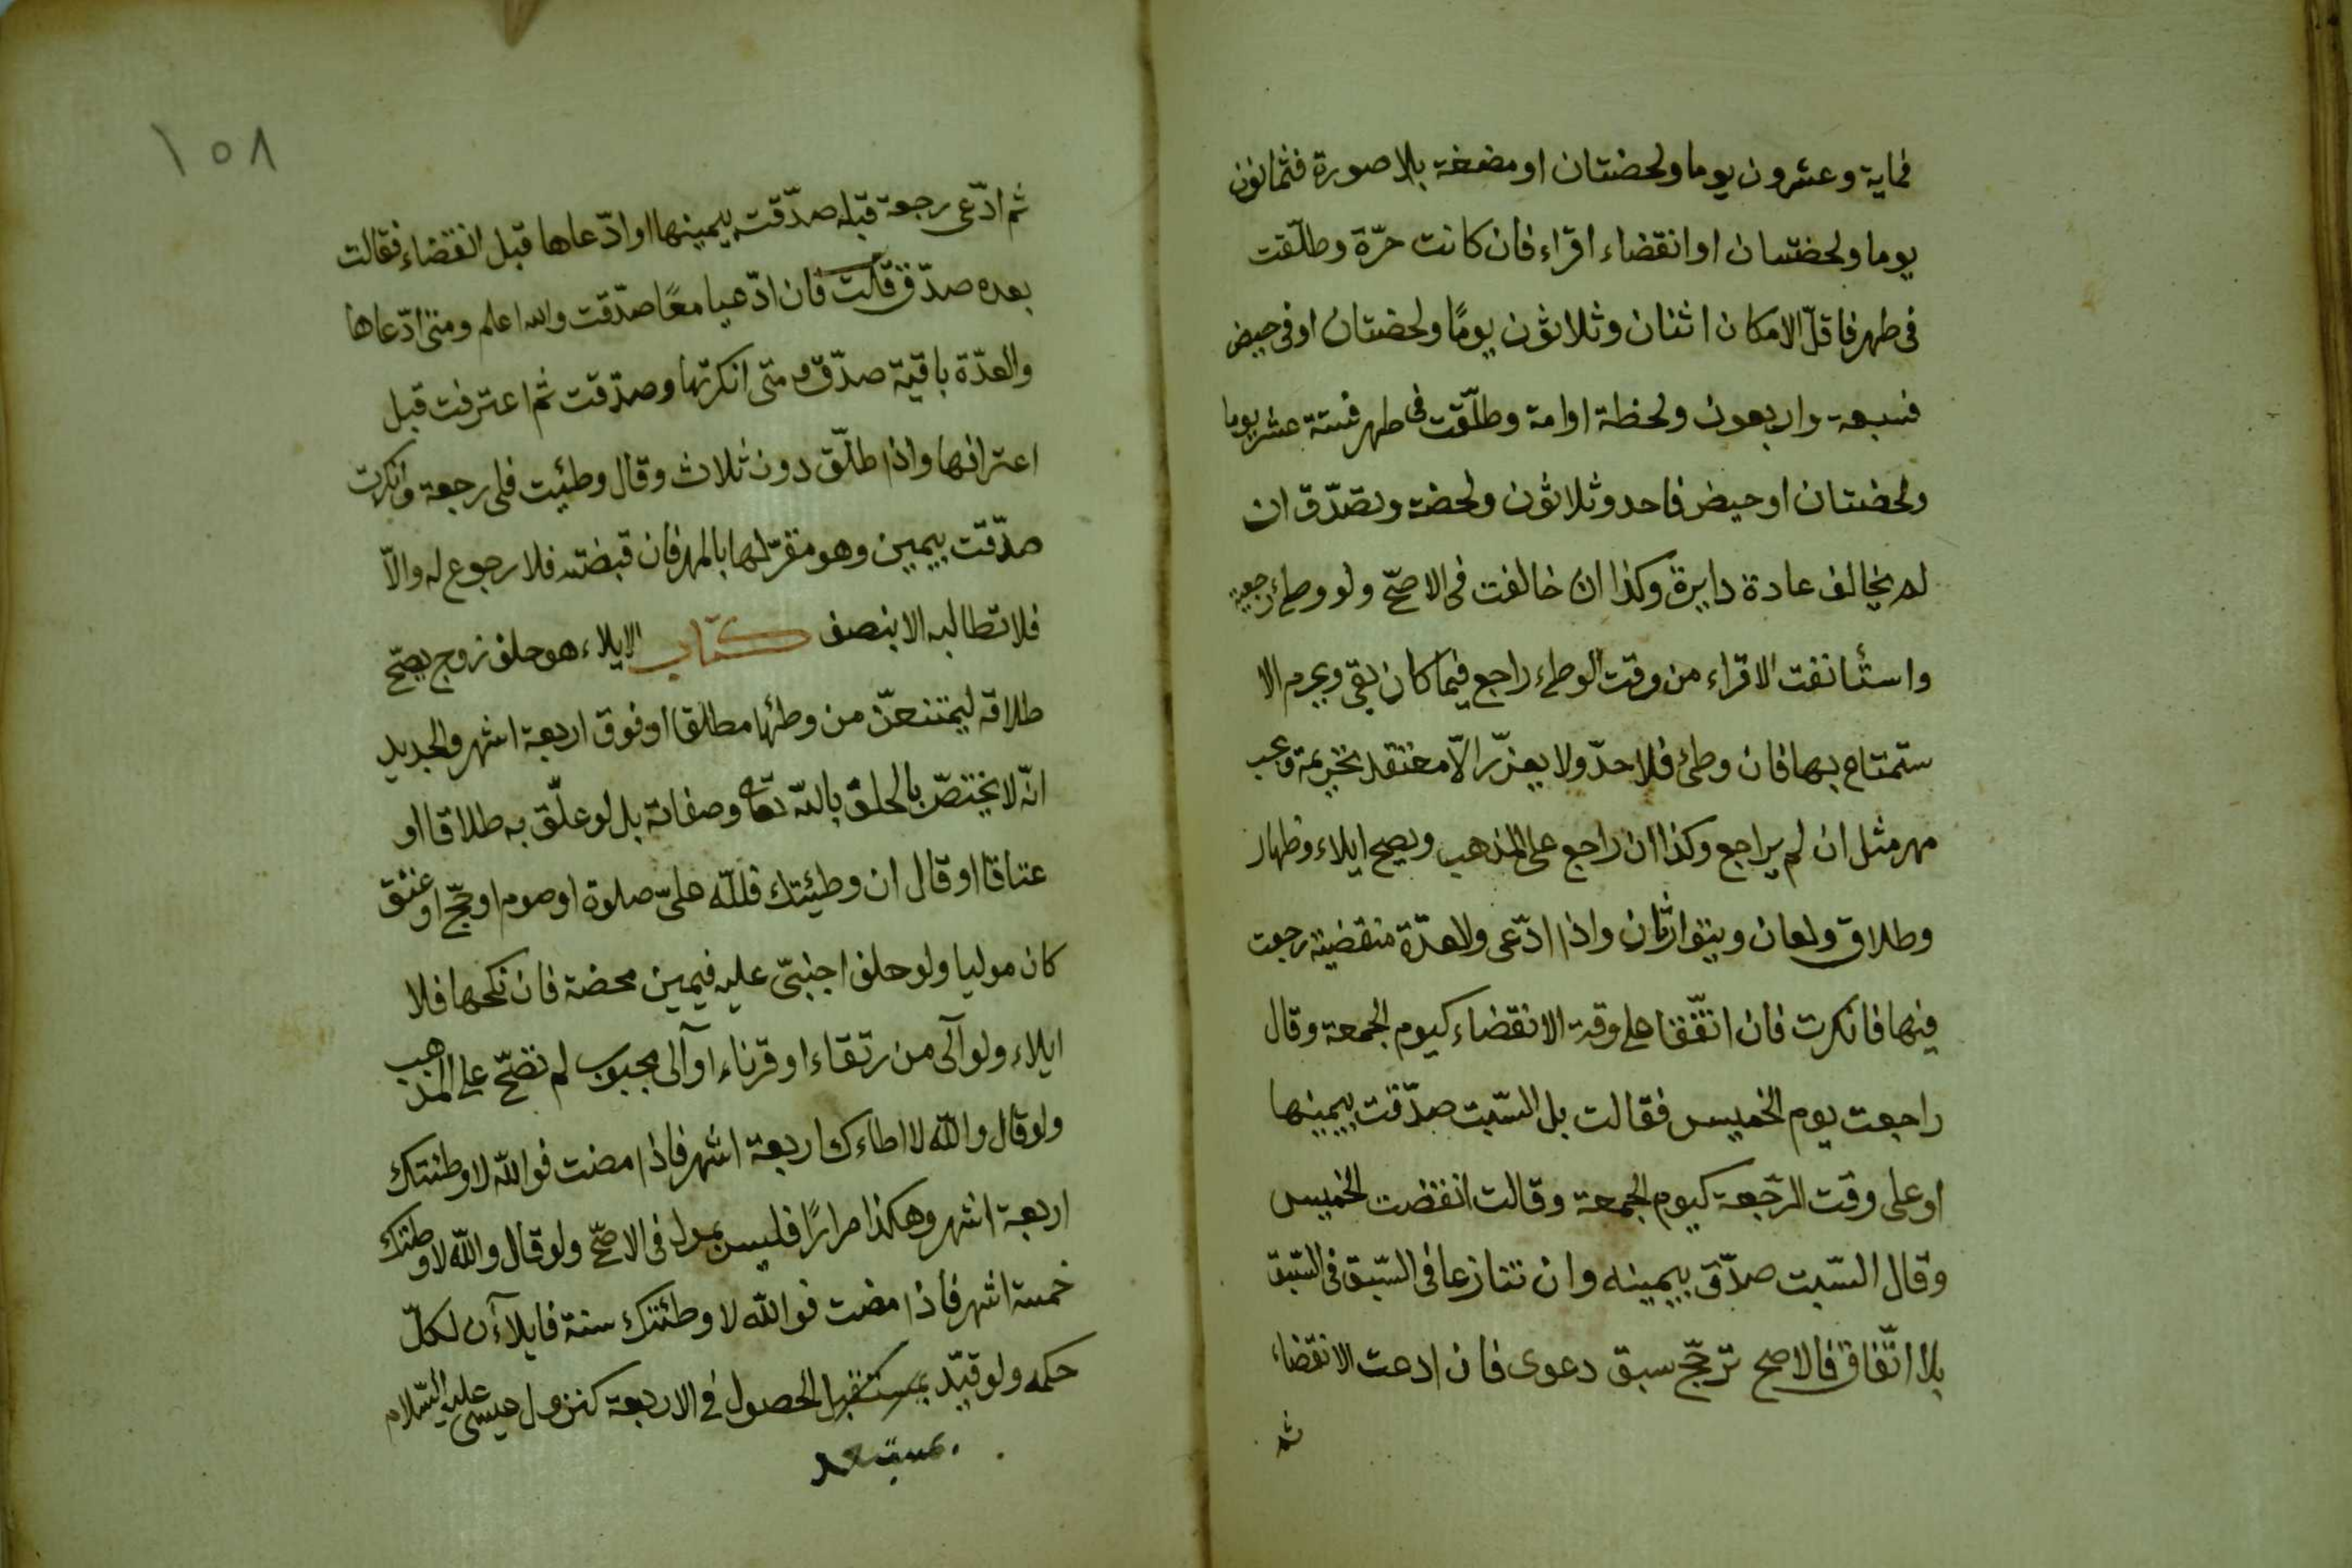 فماية وعشرون يوما ولحضتان او مضغة بلا صورة فثمانون
يوما ولحضتان او انقضاء اقراء فان كانت حرّة وطلّقت
فى طهر فاقلّ الامكان اثنان وثلاثون يومًا ولحضتان او فى حيض
فسبعة واربعون ولحظة او امة وطلّقت فى طهر فستة عشر يوما
ولحضتان او حيض فاحد وثلاثون ولحضة وتصدّق ان
لم يخالف عادة دايرة وكذا ان خالفت فى الاصحّ ولو وطئ رجعية
واستأنفت الاقراء من وقت الوطء راجع فيما كان بقى ويحرم الا
ستمتاع بها فان وطئ فلا حدّ ولا يعزّر الّا معتقد تحريمة ويجب
مهر مثل ان لم يراجع وكذا ان راجع على المذهب ويصح ايلاء وظهار
وطلاق ولعان ويتوارثان واذا ادّعى والعدّة منقضية رجعت
فيها فانكرت فان اتّفقا على وقت الانقضاء كيوم الجمعة وقال
راجعت يوم الخميس فقالت بل السّبت صدّقت بيمينها
او على وقت الرّجعة كيوم الجمعة وقالت انقضت الخميس
وقال السّبت صدّق بيمينه وان تنازعا فى السّبق فى السّبق
بلا اتّفاق فالاصح ترجّح سبق دعوى فان ادعت الانقضاء
ثم
١٥٨
ثم ادّعى رجعة قبله صدّقت بيمينها او ادّعاها قبل انقضاء فقالت
بعده صدّق قالت فان ادّعيا معًا صدّقت والله اعلم ومتى ادّعاها
والعدّة باقية صدّق ومتى انكرتها وصدّقت ثم اعترفت قبل
اعترافها واذا طلّق دون ثلاث وقال وطئيت فلى رجعة وانكرت
صدّقت بيمين وهو مقرّ لها بالمهر فان قبضته فلا رجوع له والّا
فلا تطالبه الا بنصف كتاب الايلاء هو حلف زوج يصحّ
طلاقه ليمتنعنّ من وطئها مطلقا او فوق اربعة اشهر والجديد
انّه لا يختصّ بالحلق بالله تعالى وصفاته بل لو علّق به طلاقا او
عتاقا او قال ان وطيئتك فللّه علىّ صلوة او صوم او حجّ او عتق
كان موليا ولو حلف اجنبىّ عليه فيمين محضة فان نكحها فلا
ايلاء ولو آلى من رتقاء او قرناء او آلى مجبوب لم تصحّ على المذهب
ولو قال والله لا اطاءك اربعة اشهر فاذا مضت فوالله لا وطئتك
اربعة اشهر وهكذا مرارًا فليس بمول فى الاصحّ ولو قال والله لا وطئتك
خمسة اشهر فاذا مضت فوالله لا وطئتك سنة فايلاآن لكلّ
حكمه ولو قيّد بمستقبل الحصول فى الاربعة كنزول عيسى عليه السّلام